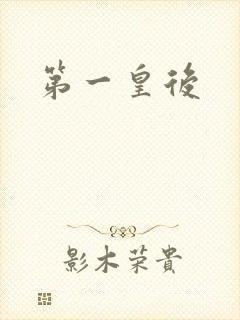 第一皇後
影木荣貴